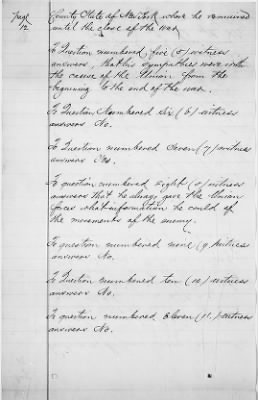 Page
12
County State of New York where he remained
until the close of the war
To Question numbered five (5) witness
answers, that his sympathies were with
the cause of the Union from the
beginning to the end of the war.
To Question Numbered Six (6) witness
answers No.
To Question numbered Seven (7) witness
answers Yes.
To question numbered Eight (8) witness
answers that he always gave the Union
forces what information he could of
the movements of the enemy.
To question numbered nine (9) witness
answers No.
To Question numbered ten (10) witness
answers No.
To question numbered Eleven (11) witness
answers No.